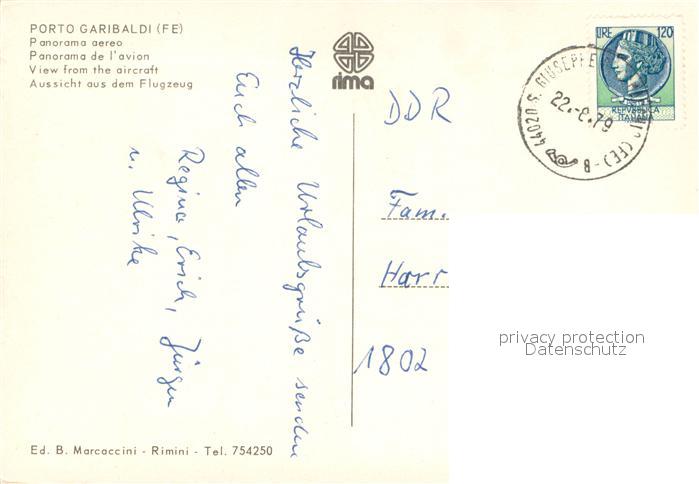 PORTO GARIBALDI (FE)
Panorama aereo
Panorama de l'avion
View from the aircraft
Aussicht aus dem Flugzeug
rima
LIRE 120
REPVBBLICA
ITALIANA
44020 S. GIUSEPPE (FE) - B
22.-8.79
Herzliche Urlaubsgrüße senden
Euch allen
Regina, Erich, Jürgen
u. Ulrike
DDR
Fam.
Harr
1802
privacy protection
Datenschutz
Ed. B. Marcaccini - Rimini - Tel. 754250